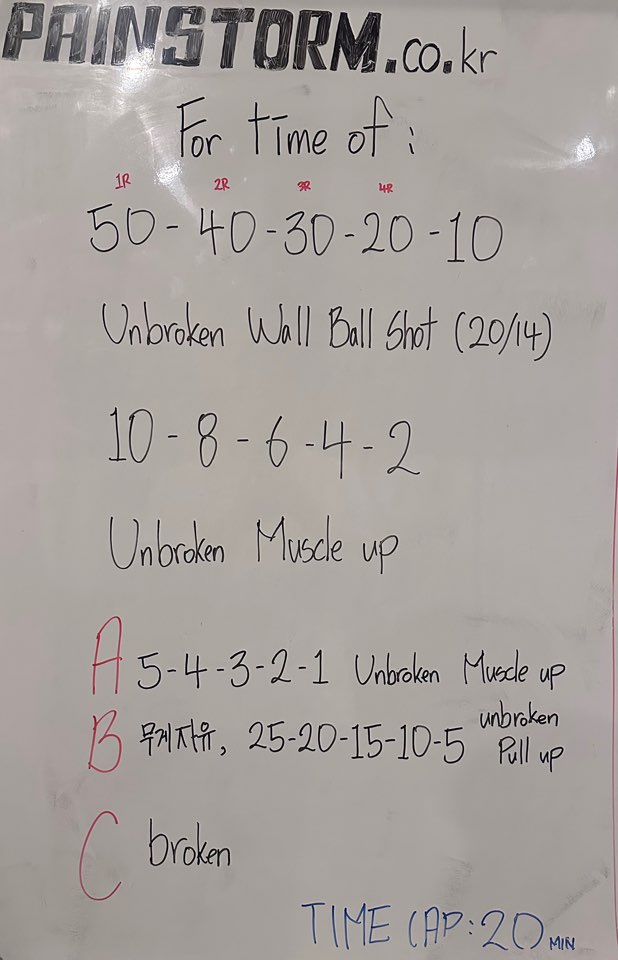 PAINSTORM.co.kr
For time of :
1R 2R 3R 4R
50 - 40 - 30 - 20 - 10
Unbroken Wall Ball Shot (20/14)
10 - 8 - 6 - 4 - 2
Unbroken Muscle up
A 5-4-3-2-1 Unbroken Muscle up
B 무게자유, 25-20-15-10-5 unbroken Pull up
C broken
TIME CAP : 20 MIN